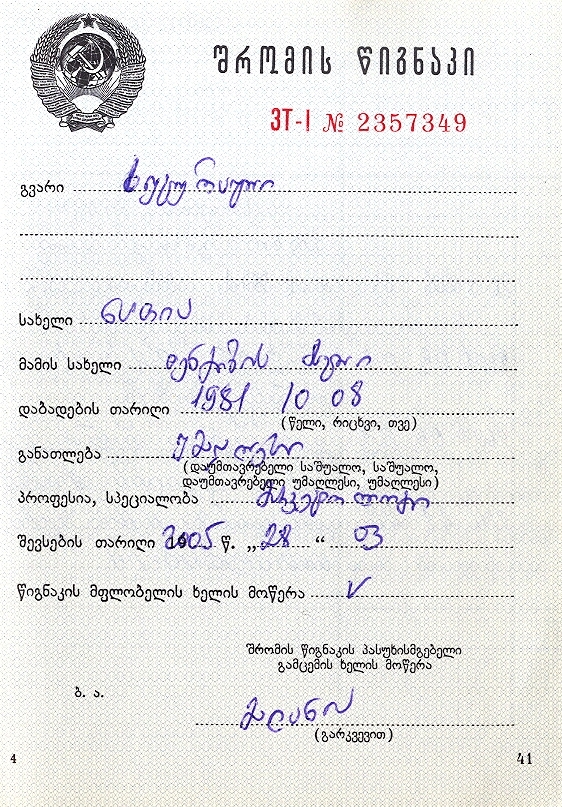 შრომის წიგნაკი
ЗТ-I № 2357349
გვარი
სახელი
მამის სახელი
დაბადების თარიღი 1981 10 08
(წელი, რიცხვი, თვე)
განათლება უმაღლესი
(დაუმთავრებელი საშუალო, საშუალო,
დაუმთავრებელი უმაღლესი, უმაღლესი)
პროფესია, სპეციალობა
შევსების თარიღი 2005 წ. „ 28 “ 03
წიგნაკის მფლობელის ხელის მოწერა
შრომის წიგნაკის პასუხისმგებელი
გამცემის ხელის მოწერა
ბ. ა.
(გარკვევით)
4 41